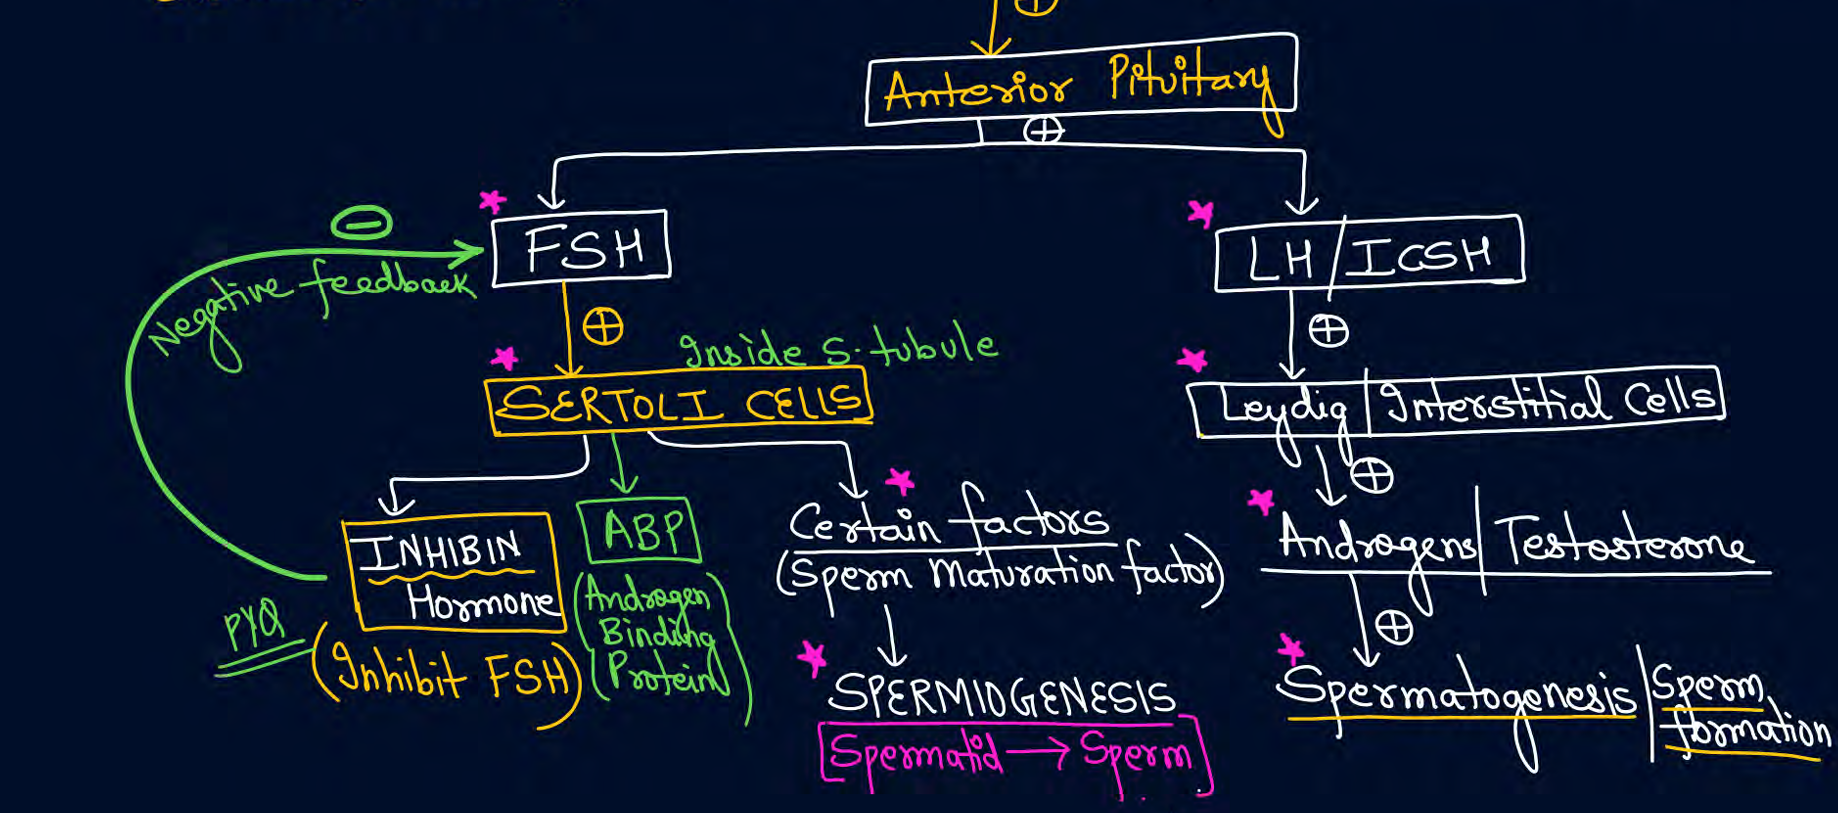 Anterior Pituitary
FSH
LH/ICSH
Negative feedback
Inside S.tubule
SERTOLI CELLS
Leydig | Interstitial Cells
INHIBIN
Hormone
(Inhibit FSH)
PYQ
ABP
(Androgen
Binding
Protein)
Certain factors
(Sperm Maturation factor)
SPERMIOGENESIS
[Spermatid → Sperm]
Androgens | Testosterone
Spermatogenesis | Sperm
formation